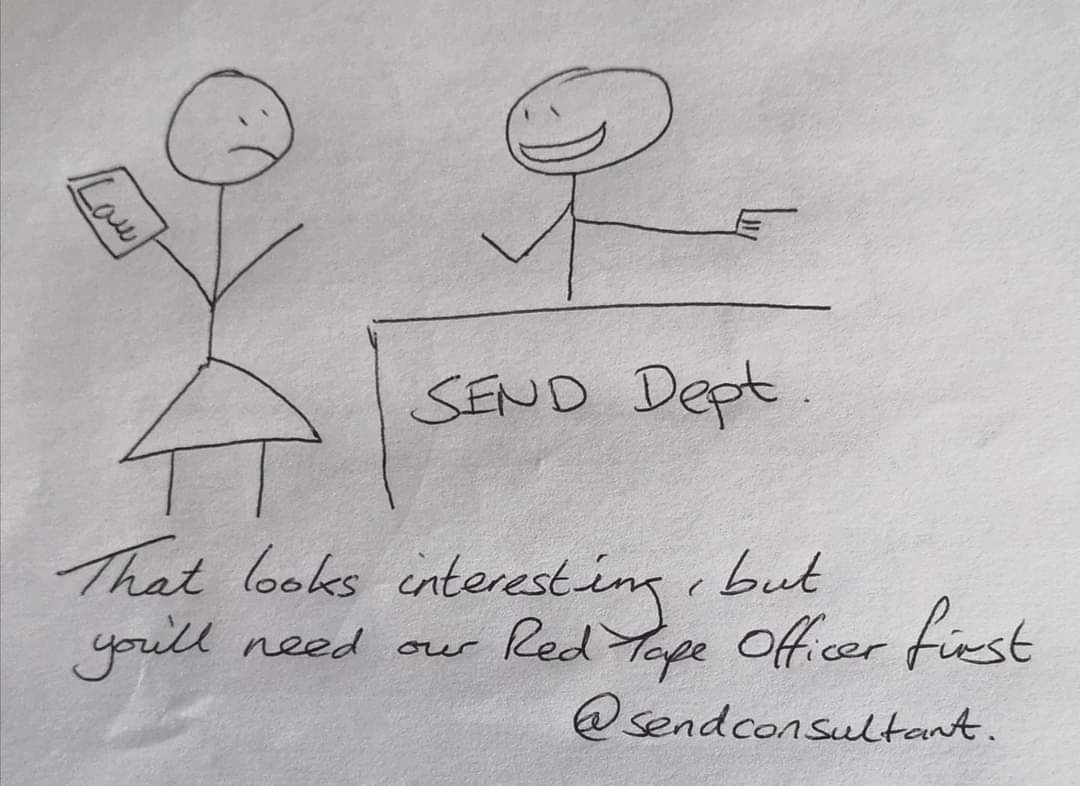 Law
SEND Dept.
That looks interesting, but
you'll need our Red Tape Officer first
@sendconsultant.